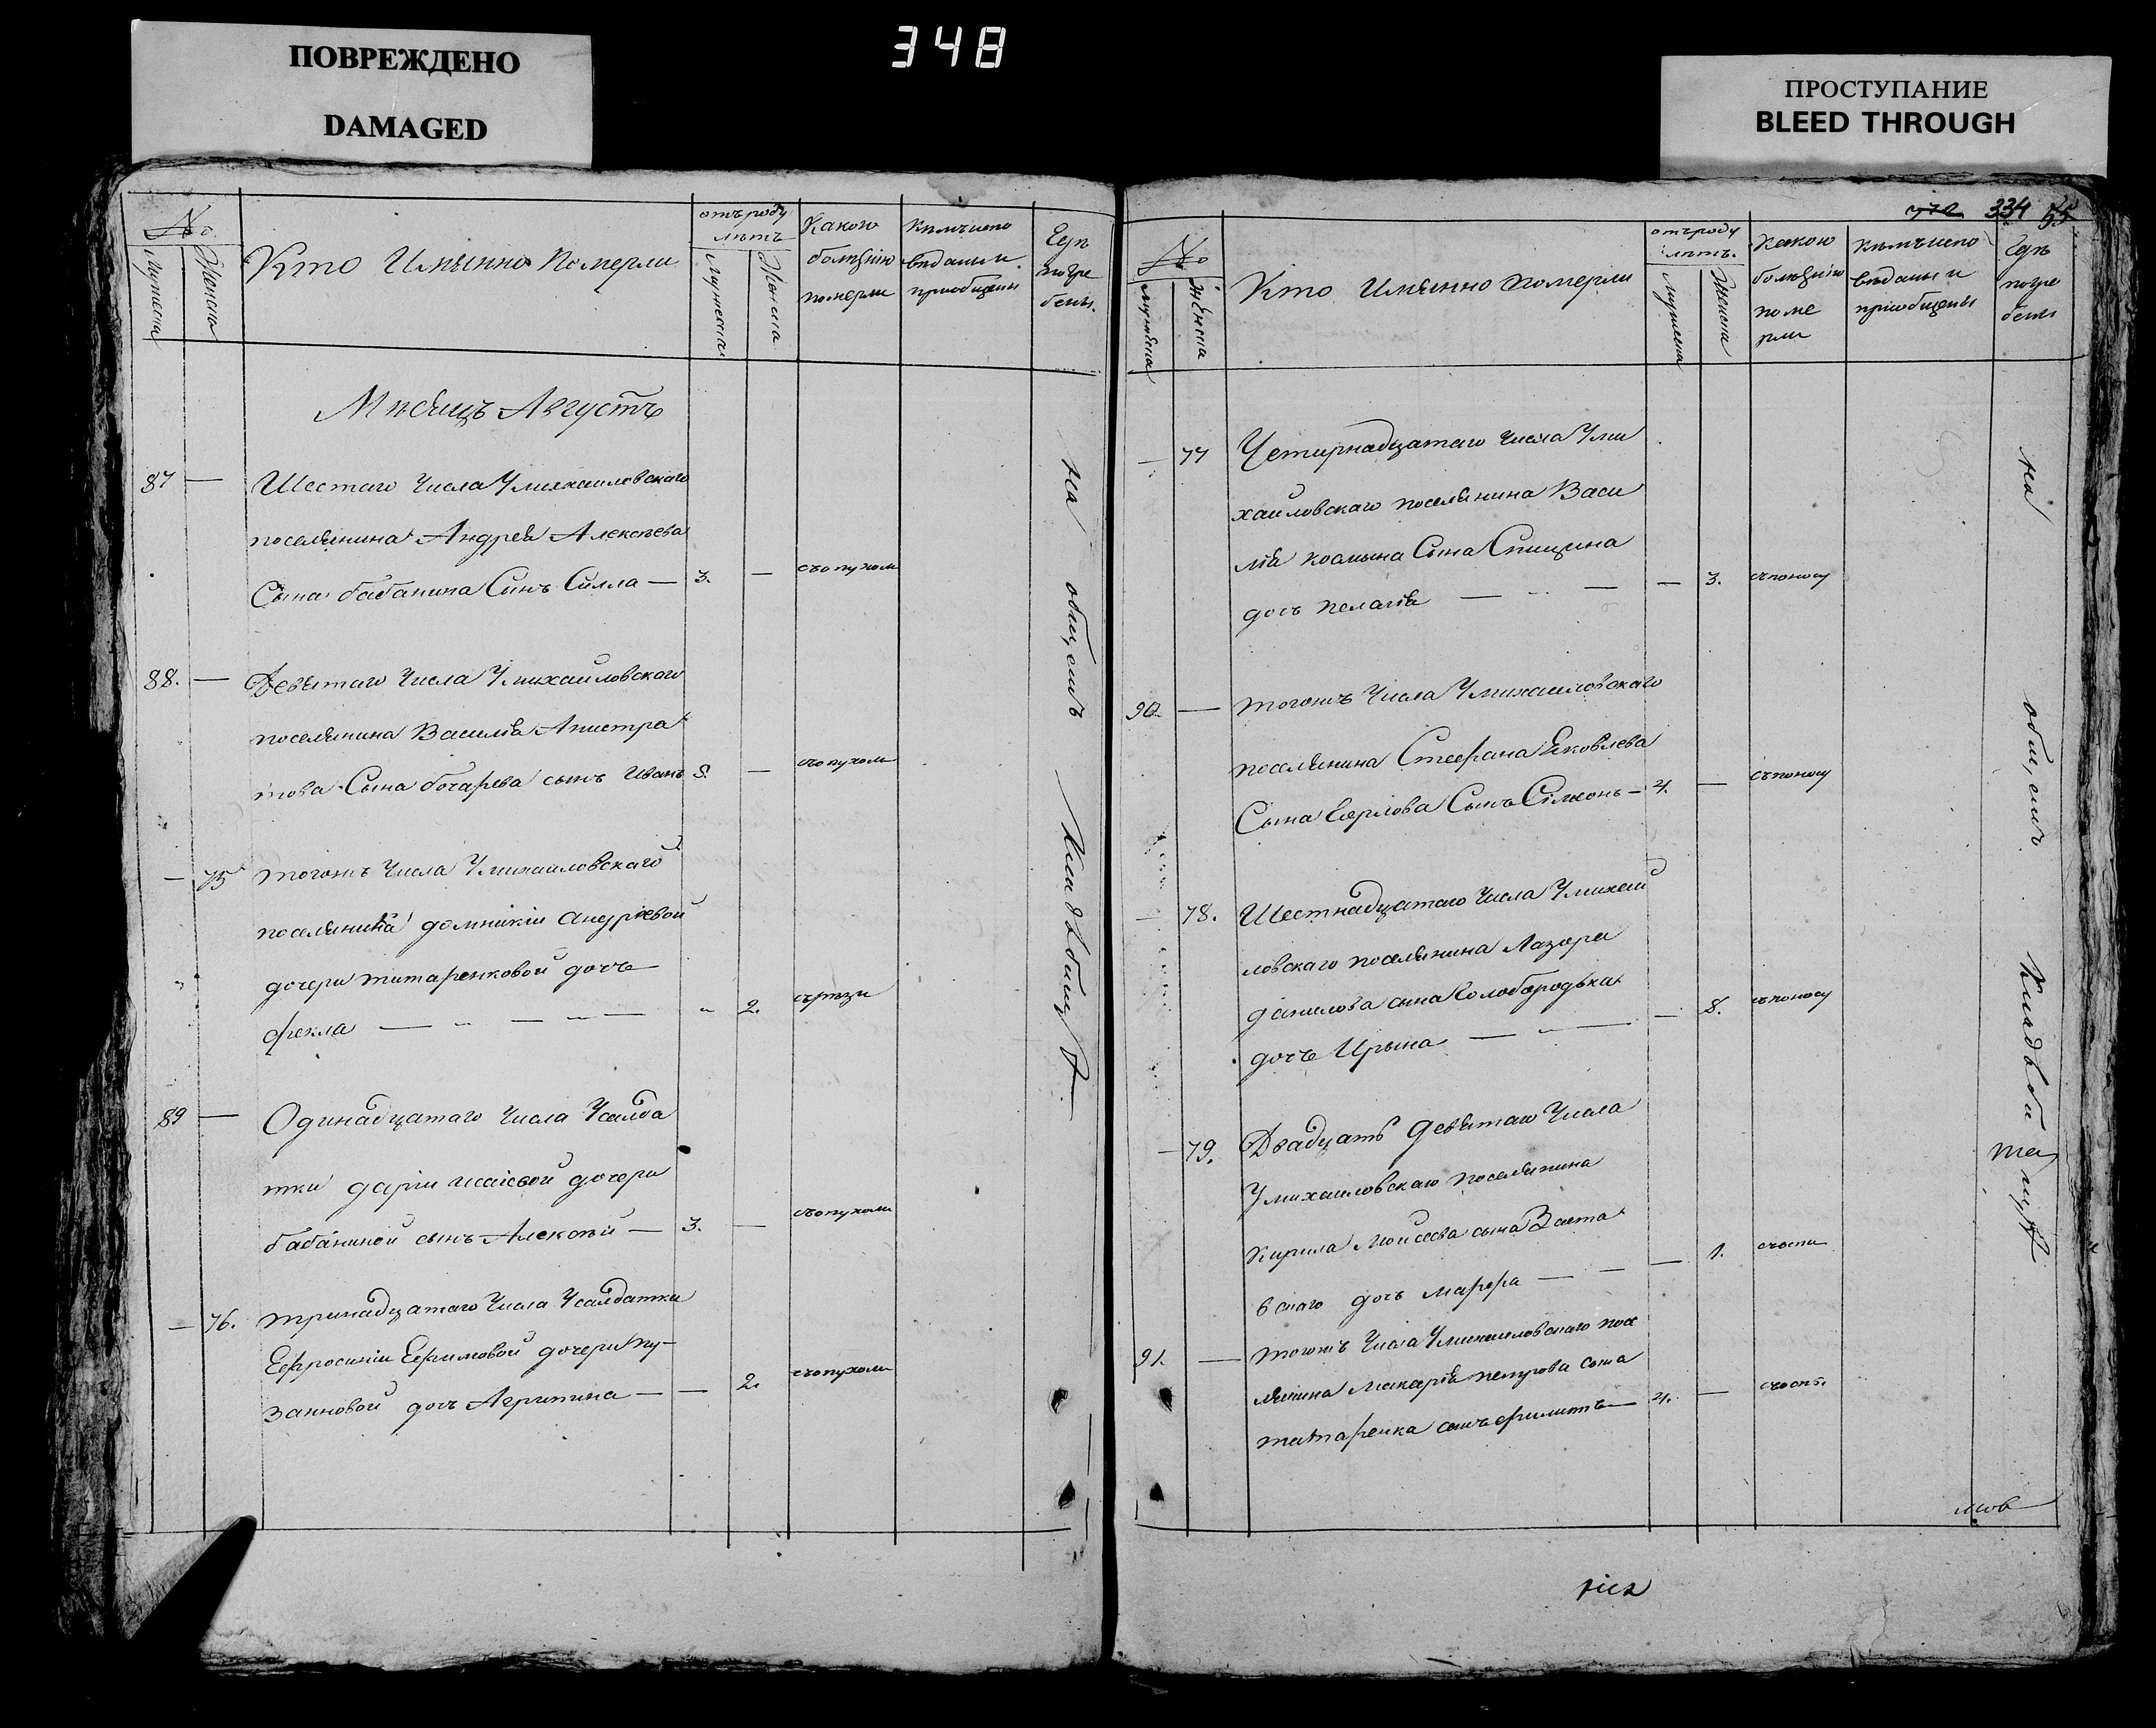 348
ПОВРЕЖДЕНО
DAMAGED
ПРОСТУПАНИЕ
BLEED THROUGH
№
Мужеска
Женска
Кто Имянно Померли
отъ роду
лѣтъ
Мужеска
Женска
Какою
болѣзнію
померли
Кѣмъ испо
вѣданы и
приобщены
Гдѣ
погре
бены.
Мѣсяцъ Августъ
87 —
Шестаго Числа Умихаиловскаго
поселянина Андрея Алексѣева
Сына бабанина Синъ Силла — 3. — съопухоли
88. —
Девятаго Числа Умихаиловскаго
поселянина Василія Апистра
това Сына бочарева сынъ Иванъ 8. — съопухоли
— 75
тогожъ Числа Умихаиловскаго
поселянина домнікіи Андріевой
дочери титаренковой дочь
фекла — — — 2. сърѣзи
89 —
Одинадцатаго Числа Усалда
тки даріи исаіевой дочери
бабаниной сынъ Алексѣй — 3. — съопухоли
— 76.
тринадцатаго Числа Усалдатки
Ефросиніи Ефимовой дочери пу-
занновой дочъ Агрипина — — 2. съопухоли
на общемъ Кладбищѣ
334 55
№
мужеска
женска
Кто Имянно померли
отъ роду
лѣтъ.
мужеска
Женска
какою
болѣзнію
поме
рли
кѣмъ испо
вѣданы и
приобщены
Гдѣ
погре
бены
— 77
Четирнадцатаго числа Уми
хаиловскаго поселянина Васи
лія козмына Сына Спицина
дочъ пелагія — — — 3. съпоносу
90. —
тогожъ Числа Умихаиловскаго
поселянина Стефана Яковлева
Сына Еорлова Сынъ Сімеонъ — 4. — съпоносу
— 78.
Шестнадцатаго Числа Умихаи
ловскаго поселянина Лазора
данилова сынаКолобородька
дочъ Ирына — — — 8. съпоносу
— 79.
Двадцать девятаго Числа
Умихаиловскаго поселянина
Кирила Моисеева сына Заста
вскаго дочъ марфа — — — 1. съоспи
91. —
тогожъ Числа Умихаиловскаго посе
лянина Макарія петрова сына
титаренка сынъ филипъ — 4. — съоспы
на общемъ Кладби
щѣ